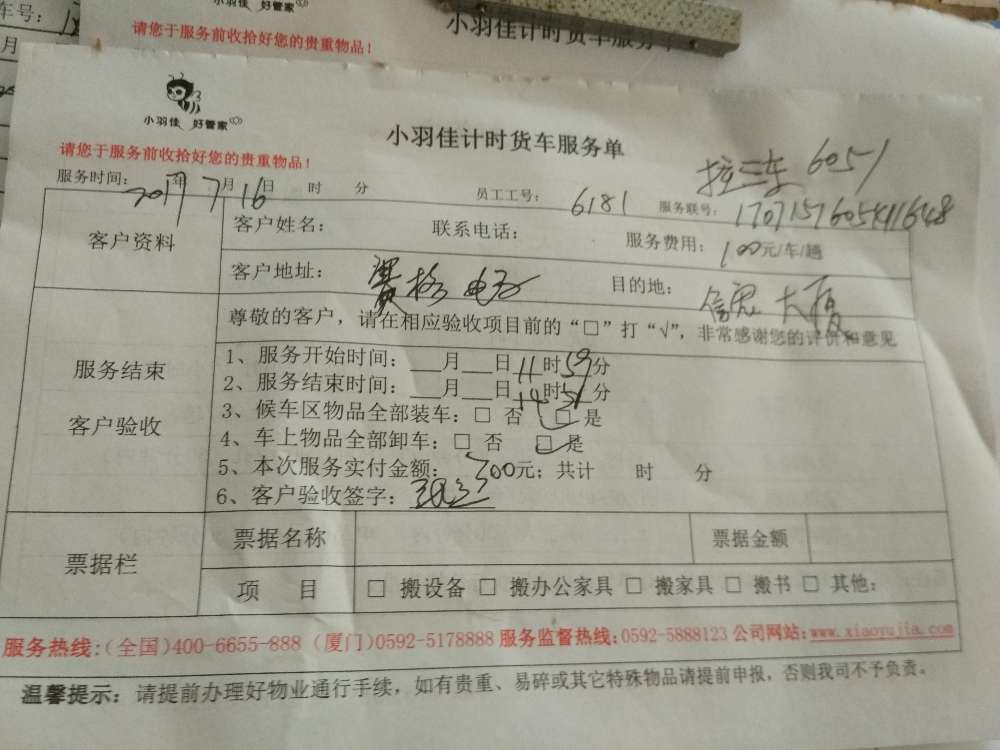 车号：
月
小羽佳 好管家
请您于服务前收拾好您的贵重物品！
小羽佳计时货车服务单
小羽佳 好管家
小羽佳计时货车服务单
请您于服务前收拾好您的贵重物品！
拉三车 6051
服务时间： 2017年 7月 16日 时 分 员工工号： 6181 服务联号： 1707157605411648
客户资料
客户姓名： 联系电话： 服务费用： 100元/车/趟
客户地址： 赛格电子 目的地： 大厦
尊敬的客户，请在相应验收项目前的“□”打“√”，非常感谢您的评价和意见
服务结束
客户验收
1、服务开始时间：___月___日11时59分
2、服务结束时间：___月___日14时51分
3、候车区物品全部装车：□ 否 □ 是
4、车上物品全部卸车：□ 否 □ 是
5、本次服务实付金额： 300元；共计 时 分
6、客户验收签字：
票据栏
票据名称 票据金额
项 目 □ 搬设备 □ 搬办公家具 □ 搬家具 □ 搬书 □ 其他：
服务热线：(全国)400-6655-888 (厦门)0592-5178888 服务监督热线：0592-5888123 公司网站：www.xiaoyujia.com
温馨提示：请提前办理好物业通行手续，如有贵重、易碎或其它特殊物品请提前申报，否则我司不予负责。